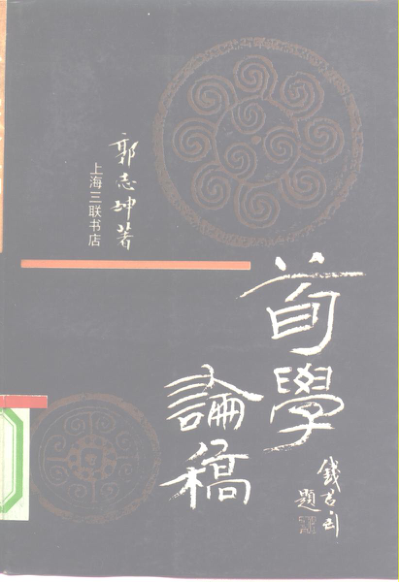 荀學
論稿
錢君匋
題
郭志坤著
上海三联书店